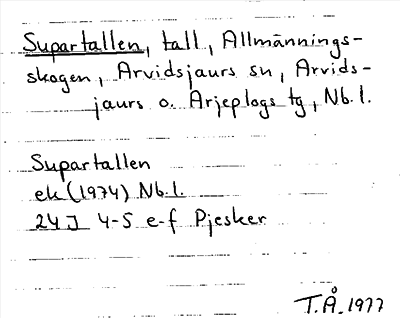 Supartallen, tall, Allmännings-
skogen, Arvidsjaurs sn, Arvids-
jaurs o. Arjeplogs tg, Nb.l.
Supartallen
ek (1974) Nb.l.
24J 4-5 e-f Pjesker
T.Å. 1977